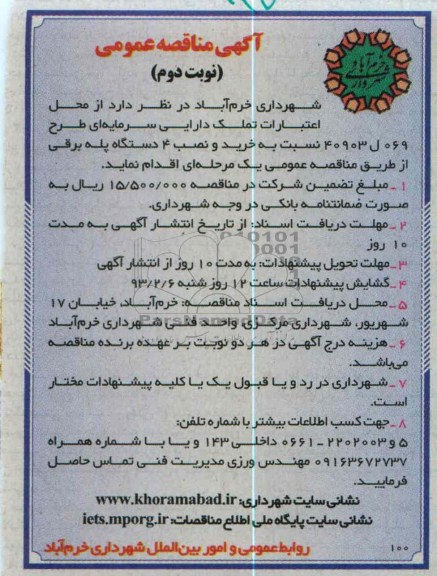 آگهی مناقصه عمومی
(نوبت دوم)
شهرداری خرم‌آباد در نظر دارد از محل
اعتبارات تملک دارایی سرمایه‌ای طرح
۰۶۹ ل ۴۰۹۰۳ نسبت به خرید و نصب ۴ دستگاه پله برقی
از طریق مناقصه عمومی یک مرحله‌ای اقدام نماید.
۱ـ مبلغ تضمین شرکت در مناقصه ۱۵/۵۰۰/۰۰۰ ریال به
صورت ضمانتنامه بانکی در وجه شهرداری.
۲ـ مهلت دریافت اسناد: از تاریخ انتشار آگهی به مدت
۱۰ روز
۳ـ مهلت تحویل پیشنهادات: به مدت ۱۰ روز از انتشار آگهی
۴ـ گشایش پیشنهادات ساعت ۱۲ روز شنبه ۹۳/۲/۶
۵ـ محل دریافت اسناد مناقصه: خرم‌آباد، خیابان ۱۷
شهریور، شهرداری مرکزی، واحد فنی شهرداری خرم‌آباد
۶ـ هزینه درج آگهی در هر دو نوبت بر عهده برنده مناقصه
می‌باشد.
۷ـ شهرداری در رد و یا قبول یک یا کلیه پیشنهادات مختار
است.
۸ـ جهت کسب اطلاعات بیشتر با شماره تلفن:
۵ و ۲۲۰۲۰۰۳ ـ ۰۶۶۱ داخلی ۱۴۳ و یا با شماره همراه
۰۹۱۶۳۶۷۲۷۳۷ مهندس ورزی مدیریت فنی تماس حاصل
فرمایید.
نشانی سایت شهرداری: www.khoramabad.ir
نشانی سایت پایگاه ملی اطلاع مناقصات: iets.mporg.ir
روابط عمومی و امور بین‌الملل شهرداری خرم‌آباد
۱۰۰